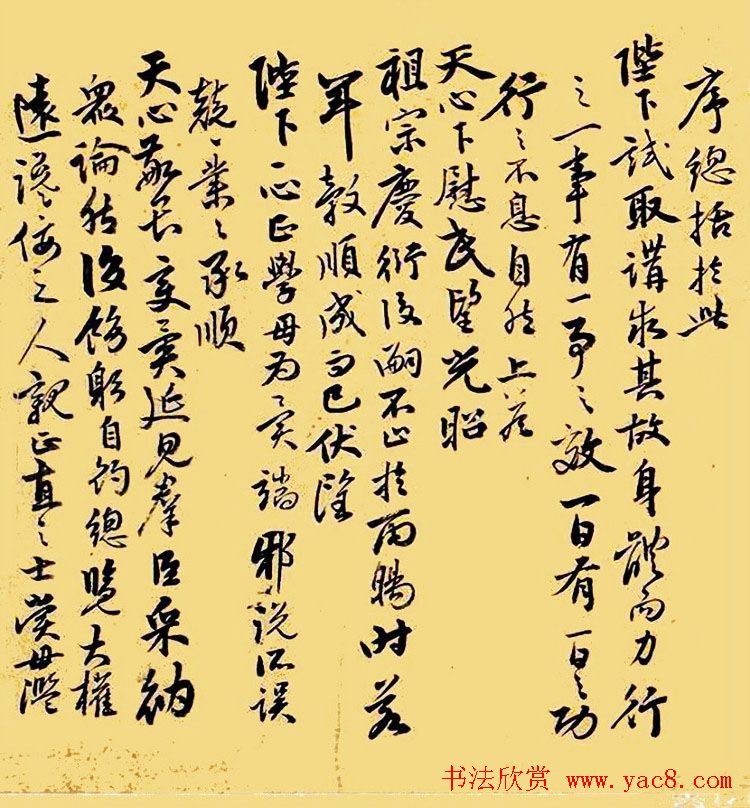 序總括於此
陛下試取講求其故身體而力行
之一事有一事之效一日有一日之功
行之不息自然上答
天心下慰民望光昭
祖宗慶衍後嗣不止於雨暘時若
年穀順成而已伏望
陛下一心正學毋為異端邪說所誤
兢々業々承順
天心敬畏變異延見群臣采納
眾論然後飭躬自約總覽大權
遠讒佞之人親正直之士賞毋濫
书法欣赏 www.yac8.com